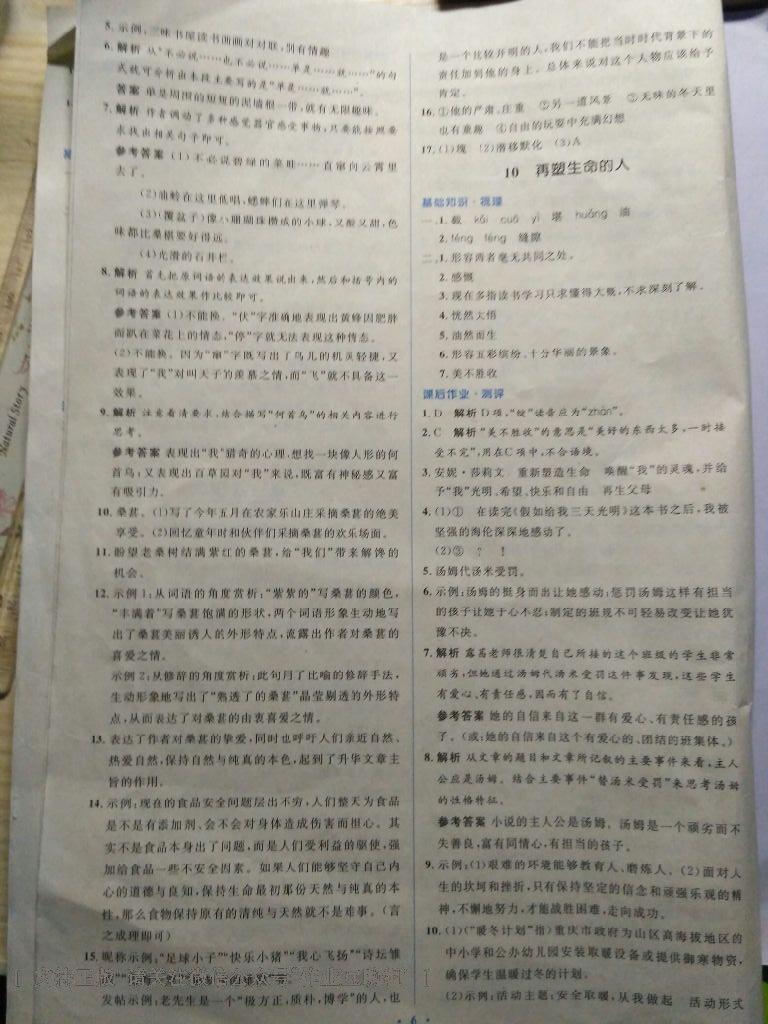 5. 示例:三味书屋读书画画对对联,别有情趣
6. 解析 从“不必说……也不必说……单是……就……”的句
式就可分析出本段主要写的是“单是……就……”。
答案 单是周围的短短的泥墙根一带,就有无限趣味。
7. 解析 作者调动了多种感觉器官感受事物,只要能按照要
求找出相关句子即可。
参考答案 (1)不必说碧绿的菜畦……直窜向云霄里
去了。
(2)油蛉在这里低唱,蟋蟀们在这里弹琴。
(3)(覆盆子)像小珊瑚珠攒成的小球,又酸又甜,色
味都比桑椹要好得远。
(4)光滑的石井栏。
8. 解析 首先把原词语的表达效果说出来,然后和括号内的
词语的表达效果作比较即可。
参考答案 (1)不能换。“伏”字准确地表现出黄蜂因肥胖
而趴在菜花上的情态,“停”字就无法表现这种情态。
(2)不能换。因为“窜”字既写出了鸟儿的机灵轻捷,又
表现了“我”对叫天子的羡慕之情,而“飞”就不具备这一
效果。
9. 解析 注意看清要求,结合描写“何首乌”的相关内容进行
思考。
参考答案 表现出“我”猎奇的心理,想找一块像人形的何
首乌;又表现出百草园对“我”来说,既富有神秘感又富
有吸引力。
10. 桑葚。(1)写了今年五月在农家乐山庄采摘桑葚的绝美
享受。(2)回忆童年时和伙伴们采摘桑葚的欢乐场面。
11. 盼望老桑树结满紫红的桑葚,给“我们”带来解馋的
机会。
12. 示例1:从词语的角度赏析:“紫紫的”写桑葚的颜色,
“丰满着”写桑葚饱满的形状,两个词语形象生动地写
出了桑葚美丽诱人的外形特点,流露出作者对桑葚的
喜爱之情。
示例2:从修辞的角度赏析:此句用了比喻的修辞手法,
生动形象地写出了“熟透了的桑葚”晶莹剔透的外形特
点,从而表达了对桑葚的由衷喜爱之情。
13. 表达了作者对桑葚的挚爱,同时也呼吁人们亲近自然、
热爱自然,保持自然与纯真的本色,起到了升华文章主
旨的作用。
14. 示例:现在的食品安全问题层出不穷,人们整天为食品
是不是有添加剂、会不会对身体造成伤害而担心。其
实不是食品本身出了问题,而是人们受利益的驱使,强
加给食品一些不安全因素。如果人们能够坚守自己内
心的道德与良知,保持生命最初那份天然与纯真的本
性,那么食物保持原有的清纯与天然就不是难事。(言
之成理即可)
15. 昵称示例:“足球小子”“快乐小猪”“我心飞扬”“诗坛雏
发帖示例:老先生是一个“极方正,质朴,博学”的人,也
是一个比较开明的人,我们不能把当时时代背景下的
责任加到他的身上。总体来说对这个人物应该给予
肯定。
16. ①他的严肃、庄重 ②另一道风景 ③无味的冬天里
也有童趣 ④自由的玩耍中充满幻想
17. (1)瑰 (2)潜移默化 (3)A
10 再塑生命的人
基础知识·梳理
一、1. 截 kǎi cuō yì 堪 huǎng 油
2. féng fèng 缝隙
二、1. 形容两者毫无共同之处。
2. 感慨
3. 现在多指读书学习只求懂得大概,不求深刻了解。
4. 恍然大悟
5. 油然而生
6. 形容五彩缤纷、十分华丽的景象。
7. 美不胜收
课后作业·测评
1. D 解析 D项,“绽”读音应为“zhàn”。
2. C 解析 “美不胜收”的意思是“美好的东西太多,一时接
受不完”,用在C项中,不合语境。
3. 安妮·莎莉文 重新塑造生命 唤醒“我”的灵魂,并给
予“我”光明、希望、快乐和自由 再生父母
4. (1)① 在读完《假如给我三天光明》这本书之后,我被
坚强的海伦深深地感动了。
(2)③ ? !
5. 汤姆代汤米受罚。
6. 示例:汤姆的挺身而出让她感动;惩罚汤姆这样有担当
的孩子让她于心不忍;制定的班规不可轻易改变让她犹
豫不决。
7. 解析 露茜老师很清楚自己所接的这个班级的学生非常
顽劣,但她通过汤姆代汤米受罚这件事发现,这些学生
有爱心、有责任感,因而有了自信。
参考答案 她的自信来自这一群有爱心、有责任感的孩
子。(或:她的自信来自这个有爱心的、团结的班集体。)
8. 解析 从文章的题目和文章所记叙的主要事件来看,主人
公应是汤姆。结合主要事件“替汤米受罚”来思考汤姆
的性格特征。
参考答案 小说的主人公是汤姆。汤姆是一个顽劣而不
失善良,富有同情心,有担当的孩子。
9. 示例:(1)艰难的环境能够教育人、磨炼人。(2)面对人
生的坎坷和挫折,只有保持坚定的信念和顽强乐观的精
神,不懈地努力,才能战胜困难,走向成功。
10. (1)(“暖冬计划”指)重庆市政府为山区高海拔地区的
中小学和公办幼儿园安装取暖设备或提供御寒物资,
确保学生温暖过冬的计划。
(2)示例:活动主题:安全取暖,从我做起 活动形式
· 6 ·
Natural Story